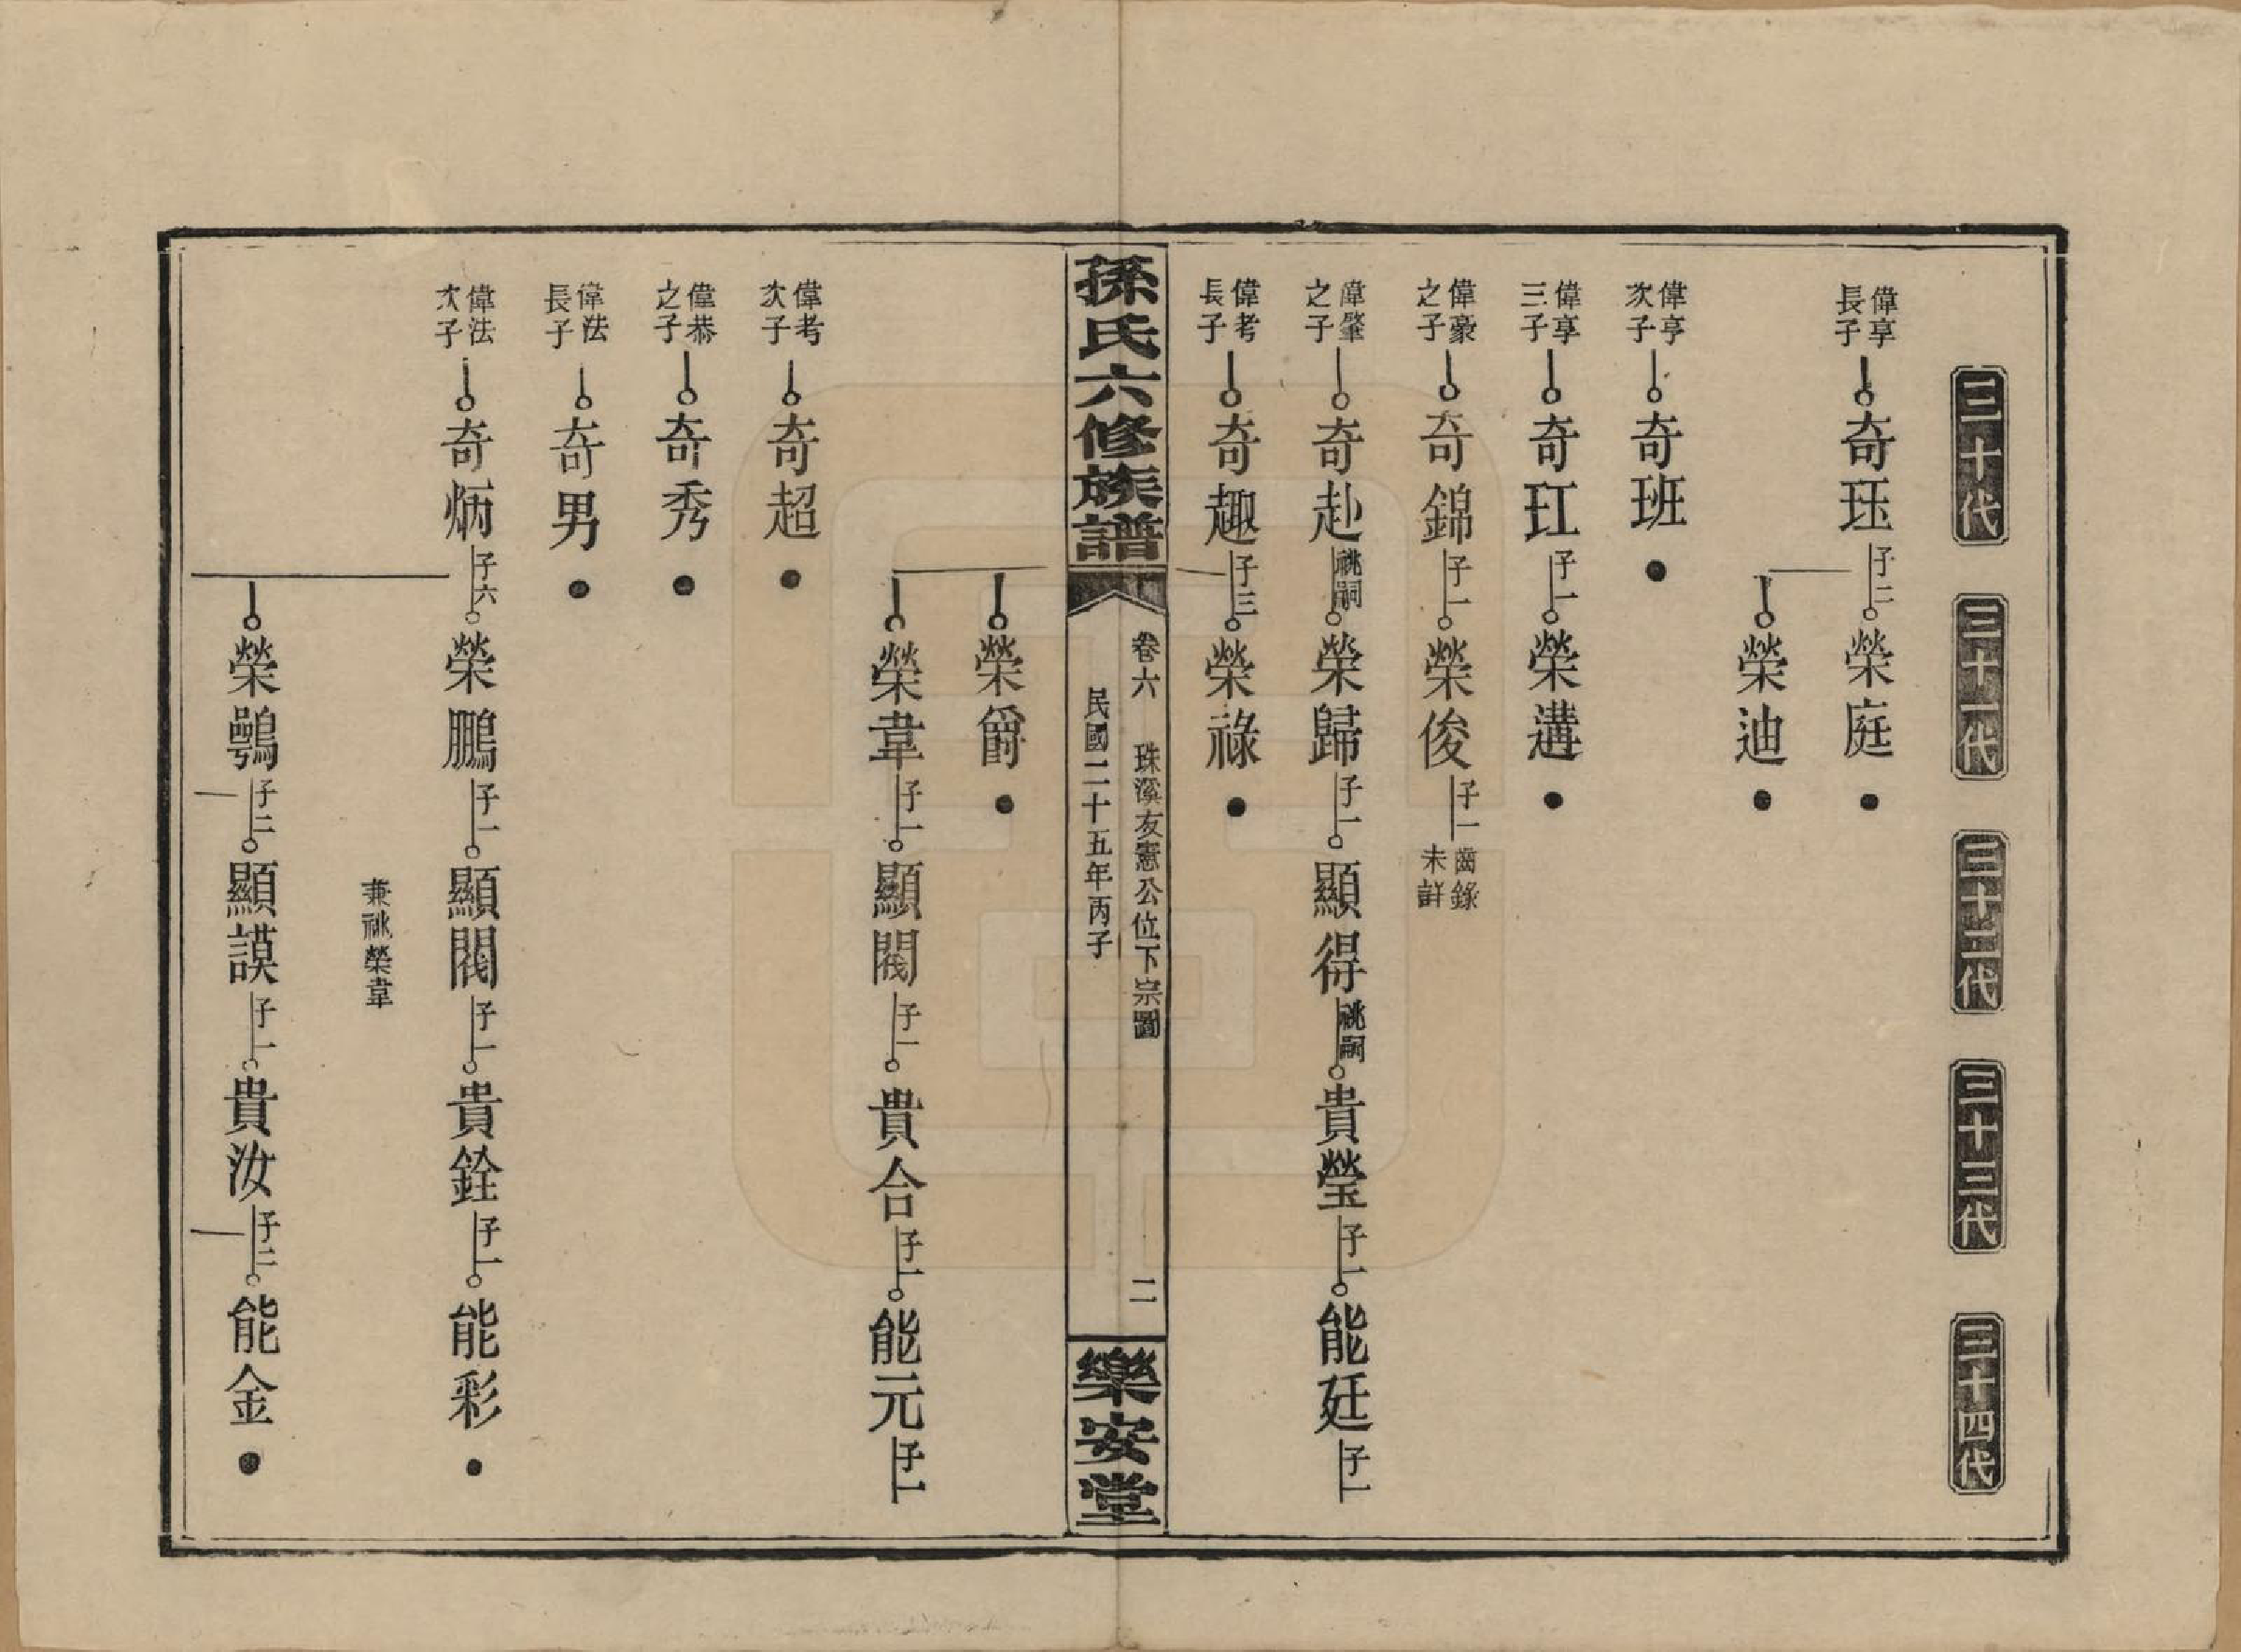 三十代
三十一代
三十二代
三十三代
三十四代
偉享長子
奇珏 子二 榮庭
榮迪
偉亨次子
奇班
偉享三子
奇玒 子一 榮遘
偉豪之子
奇錦 子一 榮俊 子一 齒錄未詳
偉肇之子
奇赴 祧嗣 榮歸 子一 顯得 祧嗣 貴瑩 子一 能廷 子一
偉考長子
奇趣 子三 榮祿
孫氏六修族譜
卷六 珠溪友憲公位下宗圖 二
民國二十五年丙子
樂安堂
榮爵
榮韋 子一 顯閥 子一 貴合 子一 能元 子一
偉考次子
奇超
偉恭之子
奇秀
偉法長子
奇男
偉法次子
奇炳 子六 榮鵬 子一 顯閥 子一 貴銓 子一 能彩
兼祧榮韋
榮鶚 子二 顯謨 子一 貴汝 子二 能金